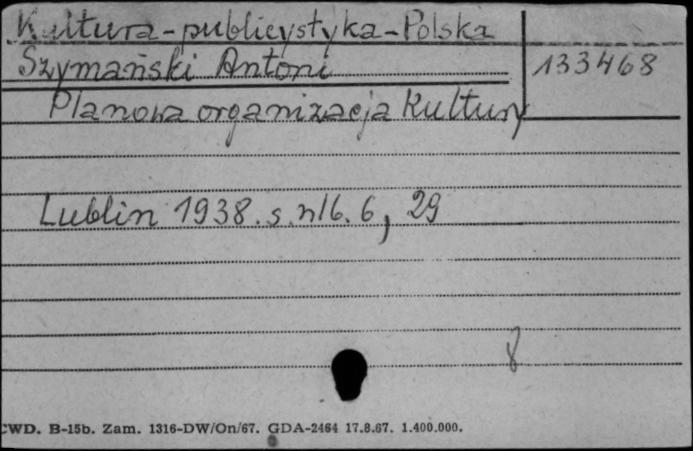 Kultura - publicystyka - Polska
Szymański Antoni
133468
Planowa organizacja Kultury
Lublin 1938. s. nlb. 6, 29
8
CWD. B-15b. Zam. 1316-DW/On/67. GDA-2464 17.8.67. 1.400.000.